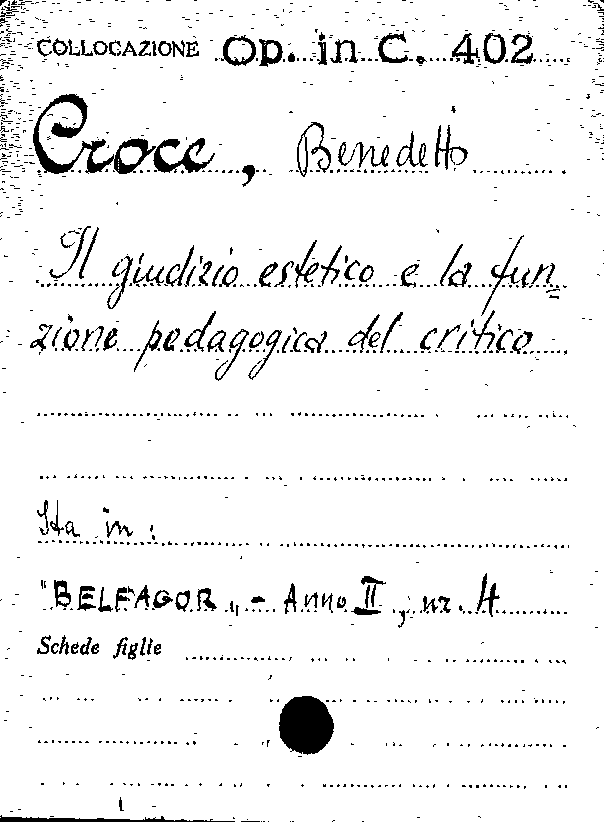 COLLOCAZIONE Op. in C. 402
Croce, Benedetto
Il giudizio estetico e la fun=
zione pedagogica del critico
Sta in:
"BELFAGOR„ - Anno II, nr. 4
Schede figlie